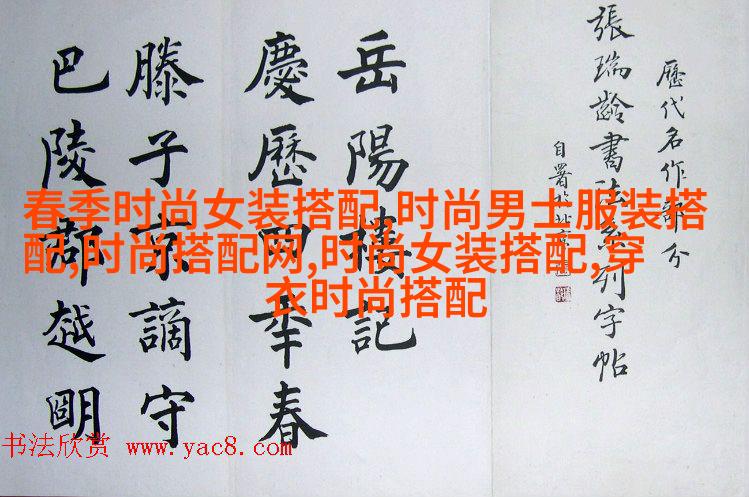 歷代名作部分
張瑞齡書法系列字帖
自署於北京
岳陽樓記
慶歷四年春
滕子京謫守
巴陵郡越明
春季时尚女装搭配,时尚男士服装搭
配,时尚搭配网,时尚女装搭配,穿
衣时尚搭配
书法欣赏 www.yac8.com